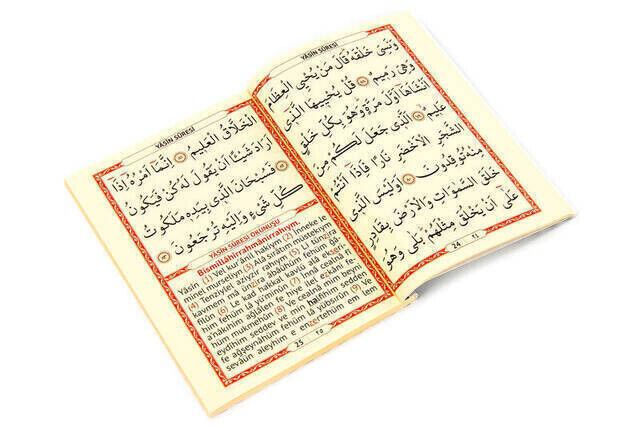 YÂSİN SÛRESİ
وَنَسِيَ خَلْقَهُ قَالَ مَنْ يُحْيِي الْعِظَامَ
وَهِيَ رَمِيمٌ ﴿٧٨﴾ قُلْ يُحْيِيهَا الَّذِي
اَنْشَاَهَا اَوَّلَ مَرَّةٍ وَهُوَ بِكُلِّ خَلْقٍ
عَلِيمٌ ﴿٧٩﴾ اَلَّذِي جَعَلَ لَكُمْ مِنَ
الشَّجَرِ الْاَخْضَرِ نَارًا فَاِذَا اَنْتُمْ
مِنْهُ تُوقِدُونَ ﴿٨٠﴾ اَوَلَيْسَ الَّذِي
خَلَقَ السَّمٰوَاتِ وَالْاَرْضَ بِقَادِرٍ
عَلٰى اَنْ يَخْلُقَ مِثْلَهُمْ بَلٰى وَهُوَ
24 ٢٤
YÂSİN SÛRESİ
الْخَلَّاقُ الْعَلِيمُ ﴿٨١﴾ اِنَّمَا اَمْرُهُ اِذَا
اَرَادَ شَيْئًا اَنْ يَقُولَ لَهُ كُنْ فَيَكُونُ
﴿٨٢﴾ فَسُبْحَانَ الَّذِي بِيَدِهِ مَلَكُوتُ
كُلِّ شَيْءٍ وَاِلَيْهِ تُرْجَعُونَ ﴿٨٣﴾
YÂSİN SÛRESİ OKUNUŞU
Bismillâhirrahmânirrahıym.
Yâsîn (1) Vel kur'ânil hakiym (2) İnneke le
minel murseliyn (3) Alâ sırâtım müstekıym
(4) Tenziylel azıyzir rahıym (5) Li tünzira
kavmem mâ ünzira âbâühüm fehüm ğâ-
filûn (6) Le kad hakkal kavlü alâ ekseri-
him fehüm lâ yü'minûn (7) İnnâ cealnâ fî
a'nâkıhim ağlâlen fe hiye ilel ezkâni fe-
hüm mukmehûn (8) Ve cealnâ mim beyni
eydîhim seddev ve min halfihim sedden
fe ağşeynâhüm fehüm lâ yübsırûn (9) Ve
sevâün aleyhim e enzertehüm em lem
25 ٢٥